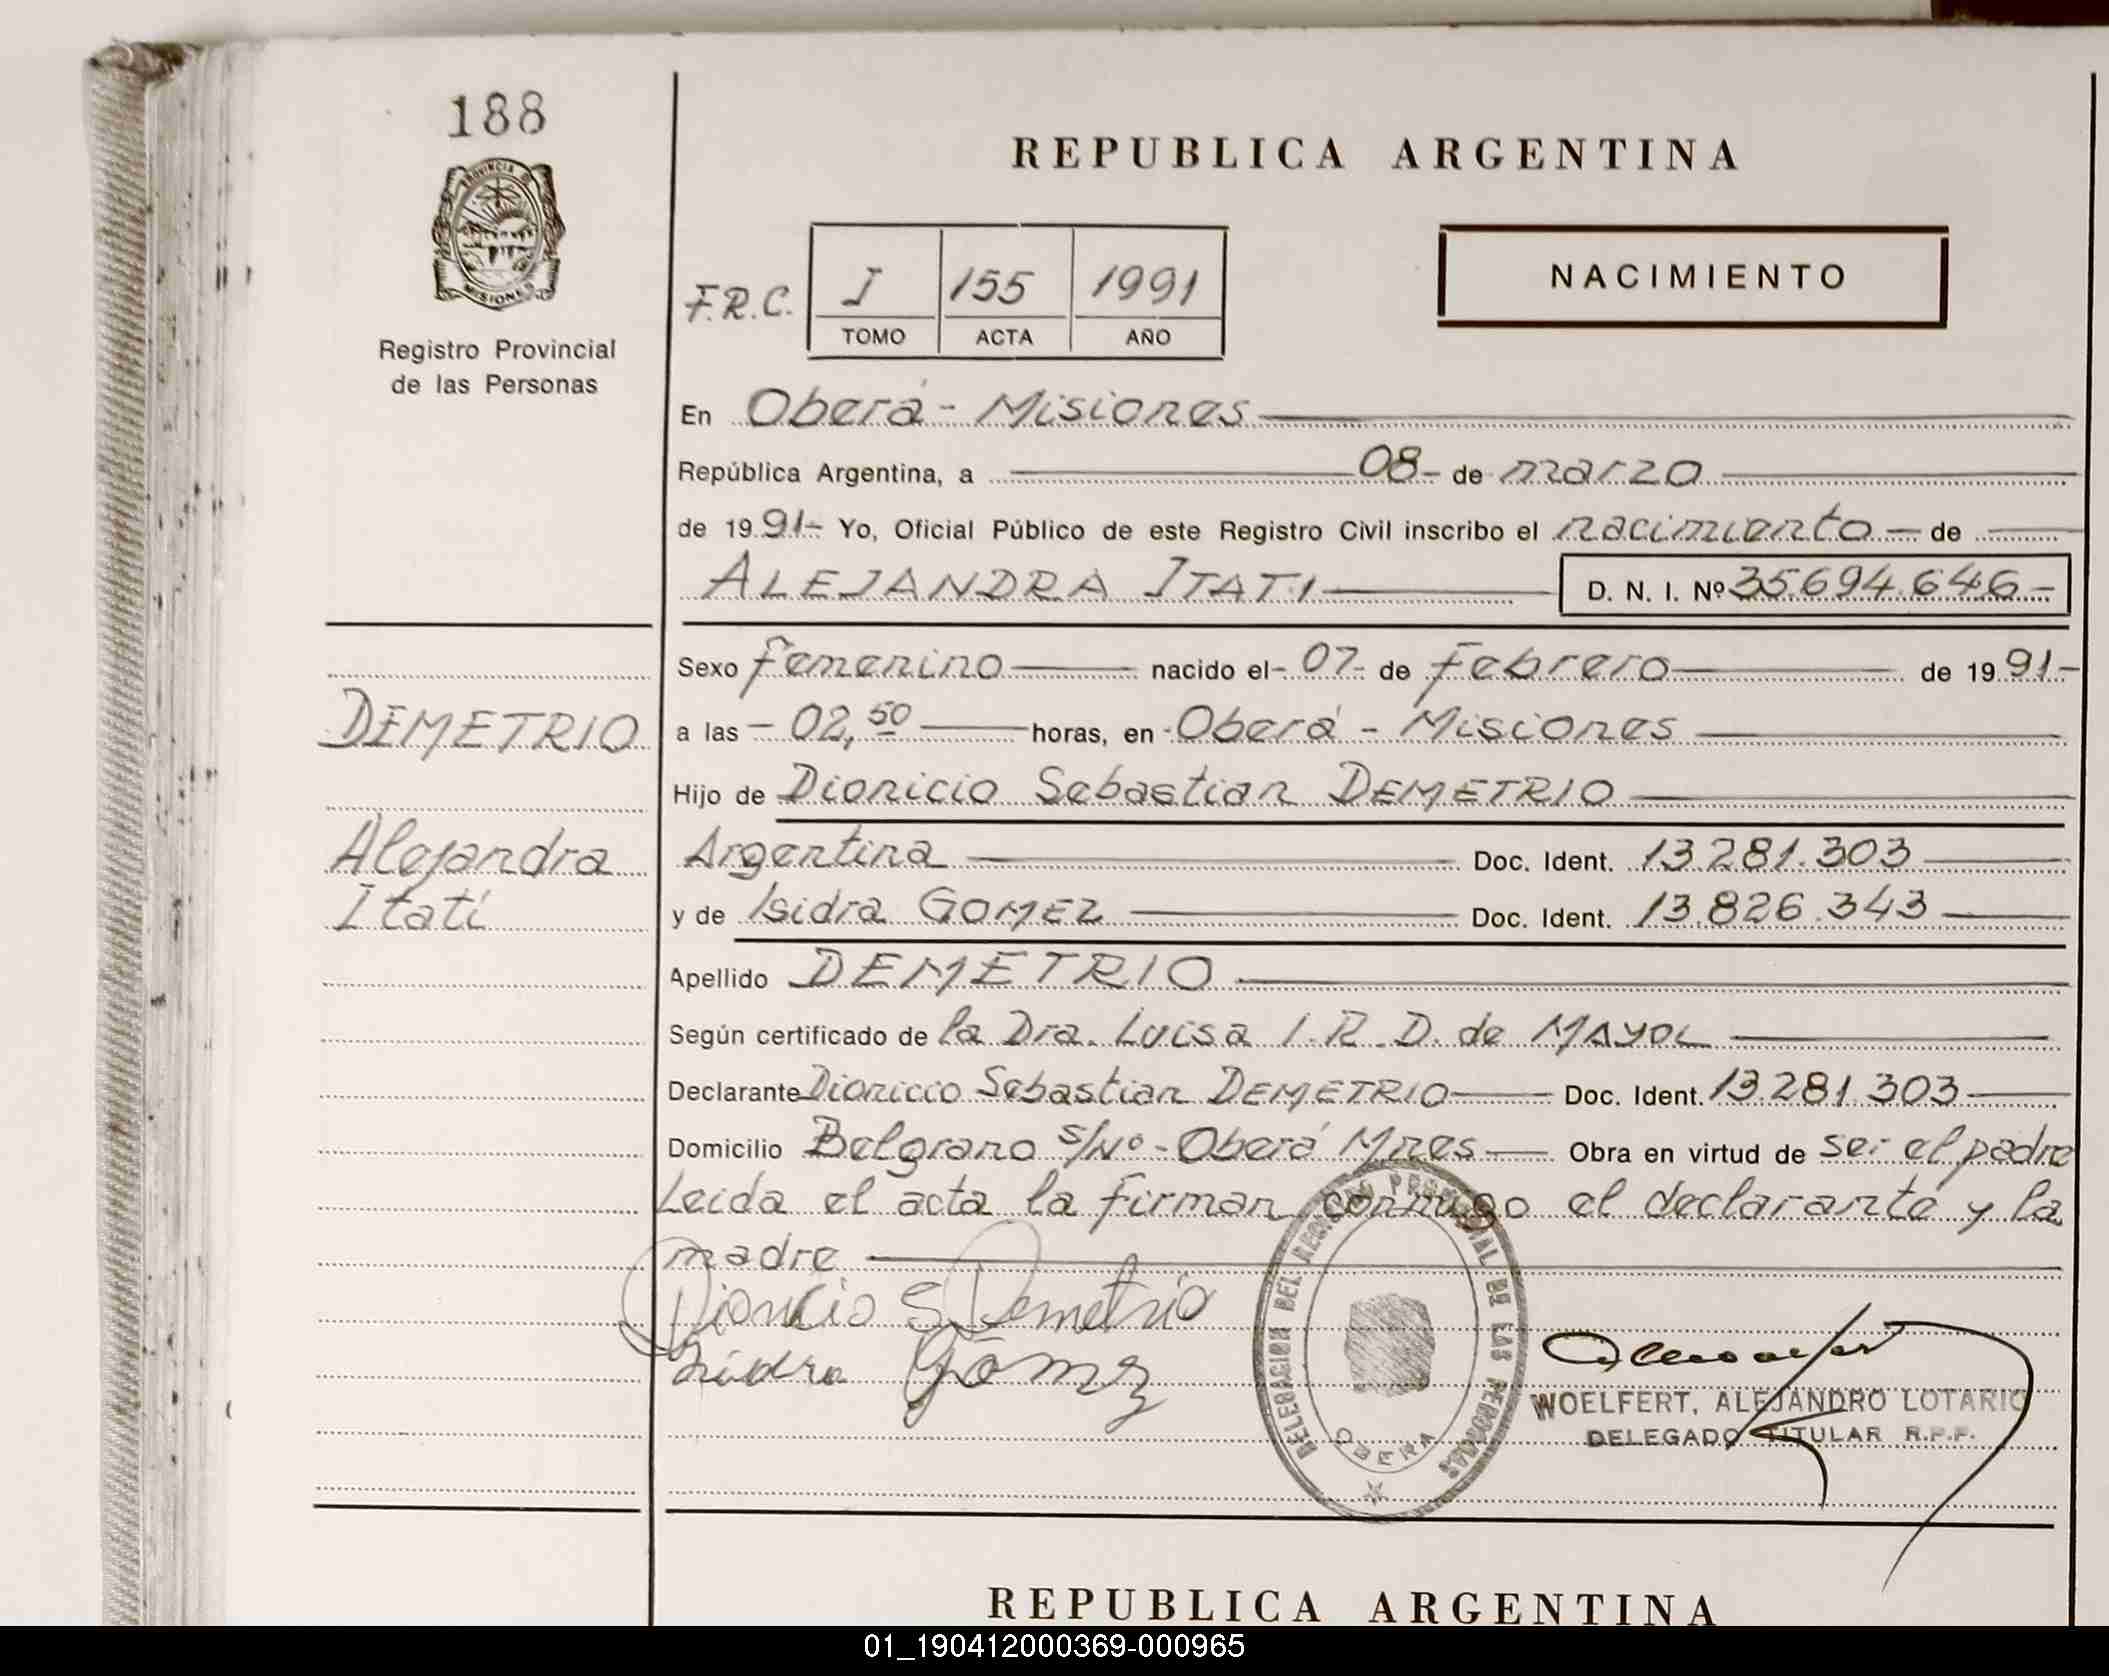 188
PROVINCIA DE
MISIONES
Registro Provincial
de las Personas
REPUBLICA ARGENTINA
F.R.C. I 155 1991
TOMO ACTA AÑO
NACIMIENTO
En Oberá - Misiones
República Argentina, a 08- de marzo
de 1991- Yo, Oficial Público de este Registro Civil inscribo el nacimiento - de
ALEJANDRA ITATI D. N. I. Nº 35694.646-
Sexo femenino nacido el - 07- de febrero de 1991-
DEMETRIO a las - 02,50 horas, en Oberá - Misiones
Hijo de Dionicio Sebastian DEMETRIO
Alejandra Argentina Doc. Ident. 13.281.303
Itatí y de Isidra GOMEZ Doc. Ident. 13.826.343
Apellido DEMETRIO
Según certificado de la Dra. Luisa I.R.D. de MAYOL
Declarante Dionicio Sebastian DEMETRIO Doc. Ident. 13.281.303
Domicilio Belgrano s/Nº - Oberá Mnes Obra en virtud de ser el padre
Leida el acta la firman conmigo el declarante y la
madre
Dionicio S Demetrio
Isidra Gómez
DELEGACION DEL REGISTRO PROVINCIAL DE LAS PERSONAS
OBERA
WOELFERT, ALEJANDRO LOTARIO
DELEGADO TITULAR R.P.P.
REPUBLICA ARGENTINA
01_190412000369-000965